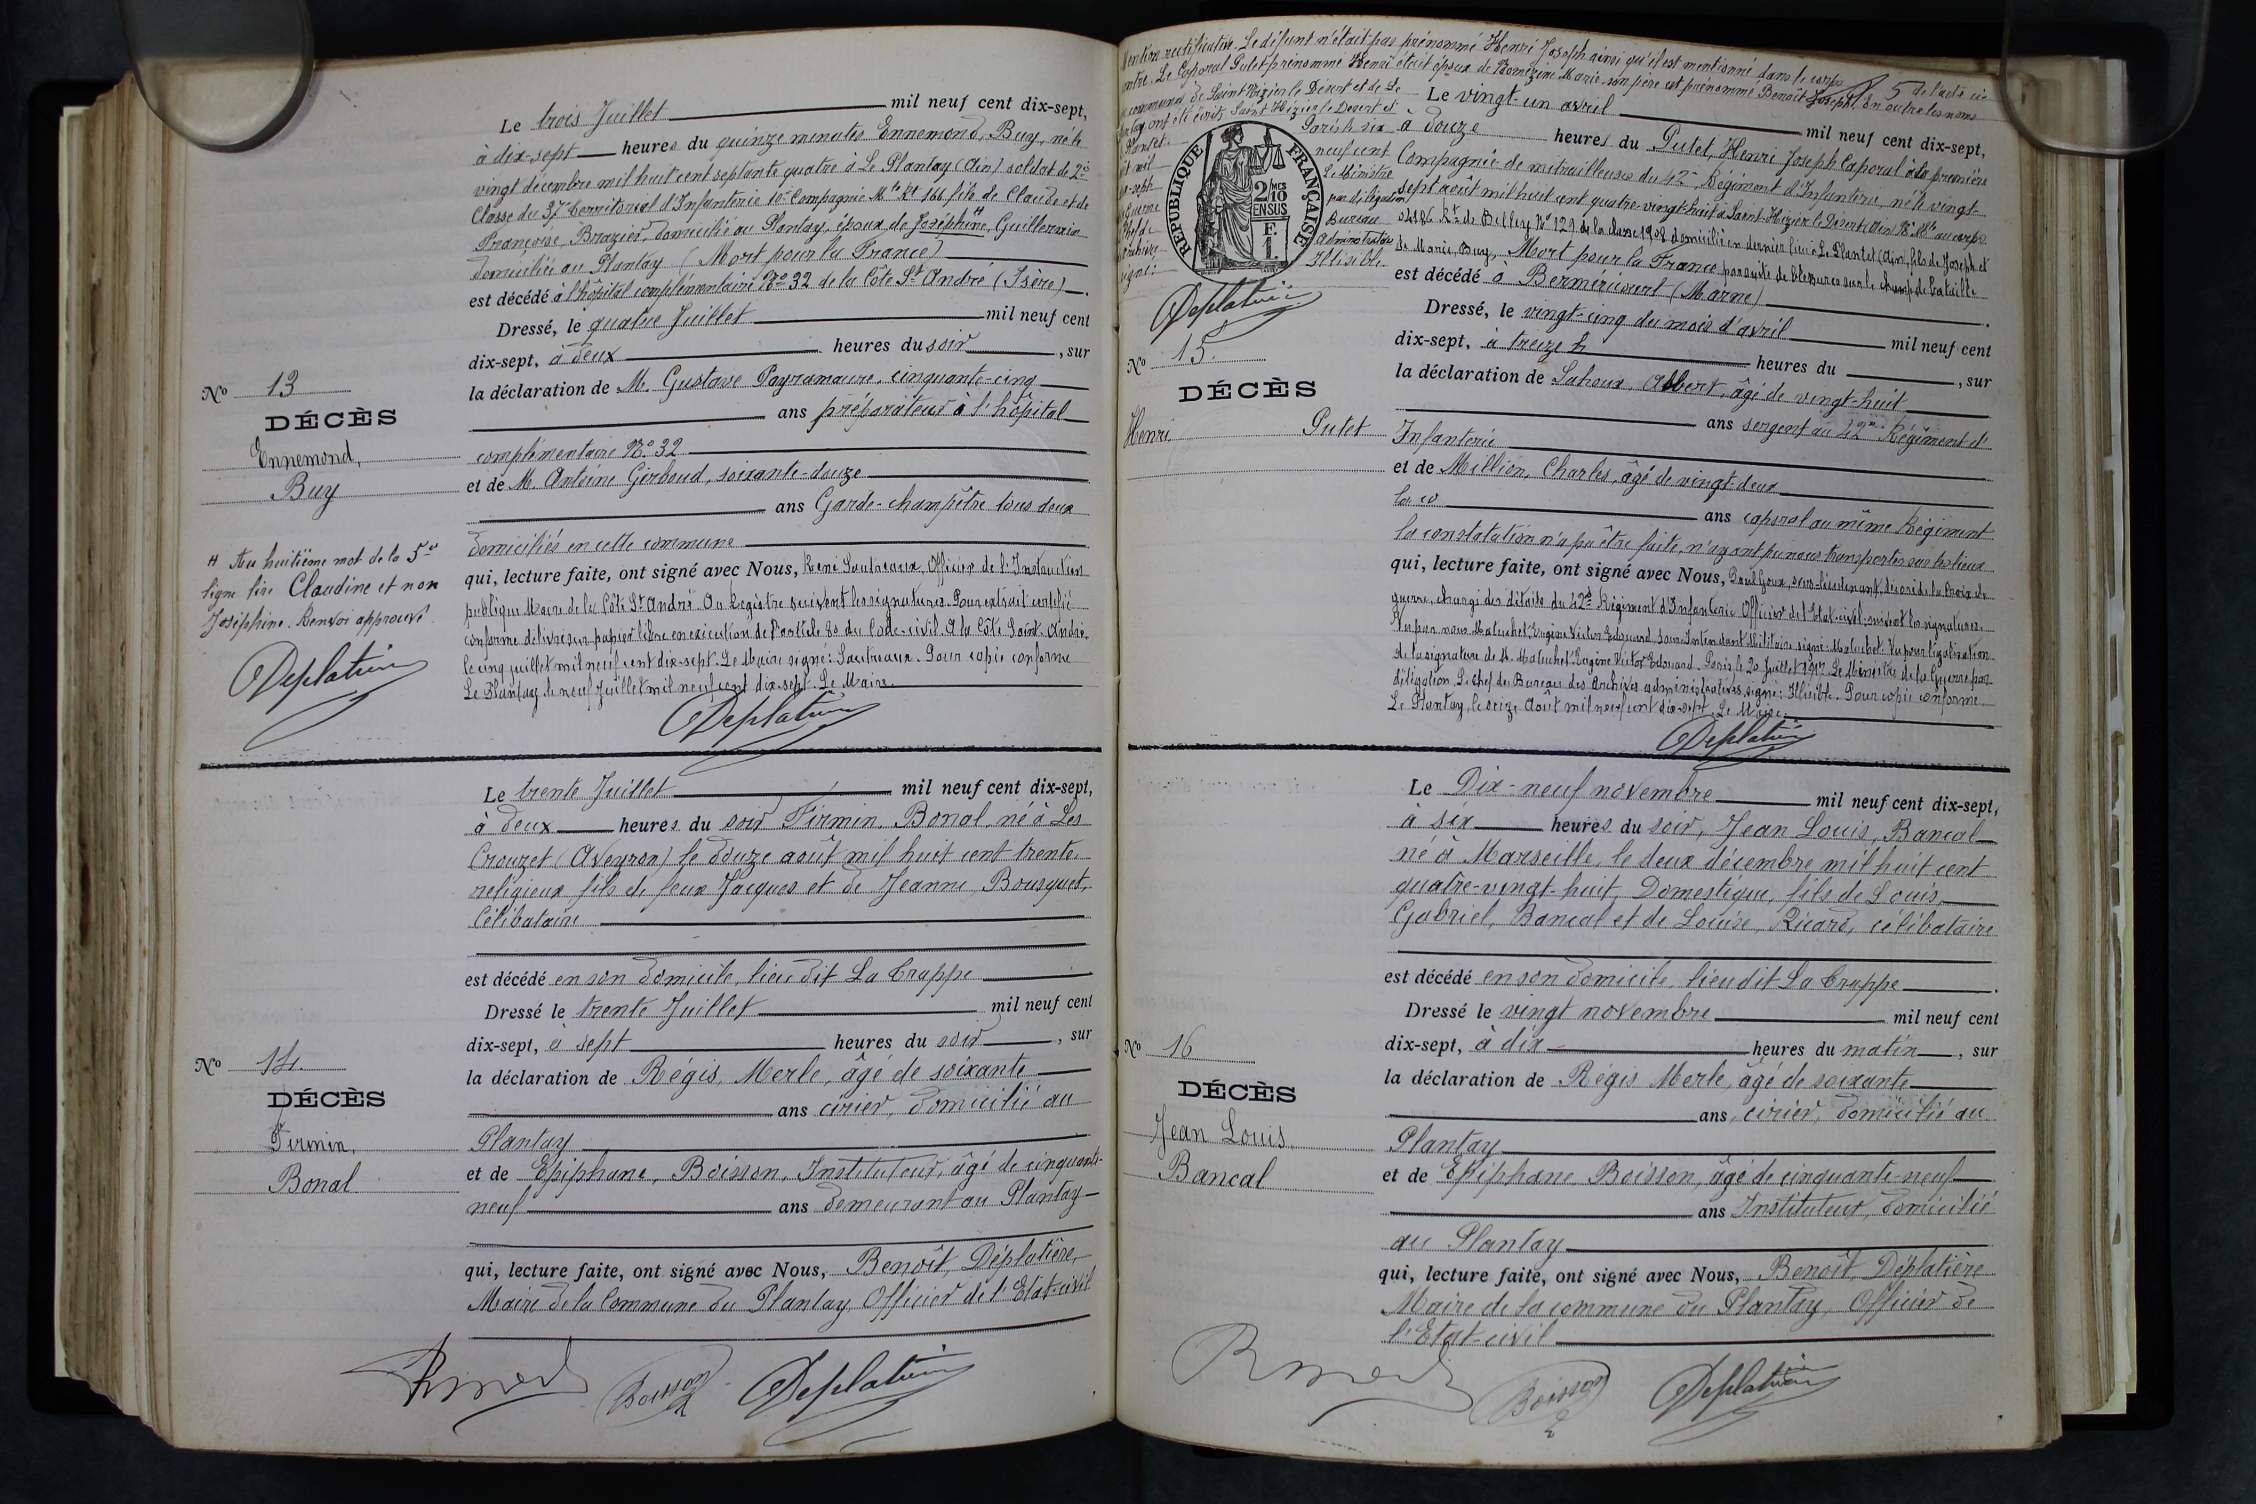 Le trois Juillet mil neuf cent dix-sept,
à dix-sept heures du quinze minutes Ennemond, Buy, né le
vingt décembre mil huit cent septante quatre à Le Plantay (Ain) soldat de 2e
Classe du 37e territorial d'Infanterie 10e Compagnie Mle Rt 166 fils de Claude et de
Françoise, Brazier, domicilié au Plantay, époux de Joséphine, Guillermin
domiciliée au Plantay (Mort pour la France)
est décédé à l'hôpital complémentaire No 32 de la Côte St André (Isère).
Dressé, le quatre Juillet mil neuf cent
dix-sept, à deux heures du soir, sur
la déclaration de M. Gustave Payramaure, cinquante-cinq
ans préparateur à l'hôpital
complémentaire No 32
et de M. Antoine Girboud, soixante-douze
ans Garde-champêtre tous deux
domiciliés en cette commune
qui, lecture faite, ont signé avec Nous, René Sautreaux, Officier de l'Instruction
publique Maire de la Côte St André. Au Registre suivent les signatures. Pour extrait certifié
conforme délivré sur papier libre en exécution de l'article 80 du Code-civil. A la Côte Saint-André.
le cinq juillet mil neuf cent dix-sept. Le Maire signé: Sautreaux. Pour copie conforme
Le Plantay le neuf Juillet mil neuf cent dix-sept. Le Maire
Deplatière
No 13
DÉCÈS
Ennemond,
Buy
H Au huitième mot de la 5e
ligne lire Claudine et non
Joséphine. Renvoi approuvé
Deplatière
Le trente Juillet mil neuf cent dix-sept,
à deux heures du soir Firmin, Bonal, né à Les
Crouzet (Aveyron) le douze août mil huit cent trente,
religieux fils de feux Jacques et de Jeanne, Bousquet,
Célibataire
est décédé en son domicile, lieu dit La Trappe
Dressé le trente Juillet mil neuf cent
dix-sept, à sept heures du soir, sur
la déclaration de Régis, Merle, âgé de soixante
ans cirier, domicilié au
Plantay
et de Epiphane, Boisson, Instituteur, âgé de cinquante-
neuf ans demeurant au Plantay
qui, lecture faite, ont signé avec Nous, Benoît, Déplatière,
Maire de la Commune du Plantay, Officier de l'Etat-civil
Boisson Deplatière
No 14.
DÉCÈS
Firmin,
Bonal
Mention rectificative. Le défunt n'était pas prénommé Henri Joseph ainsi qu'il est mentionné dans le corps de l'acte ci
contre. Le Caporal Putet prénommé Henri était époux de Marie son père est prénommé Benoît Joseph. En outre les noms
communes de Saint Nizier le Désert et de Le
ont été écrits Saint Hizier le Desert et
Plantet. Paris le six
neuf cent
Le Ministre
Guerre par délégation
Bureau
administratives
signé: Illisible.
RÉPUBLIQUE FRANÇAISE
2/10 MES
EN SUS
F.
1.
Deplatière
Le vingt-un avril mil neuf cent dix-sept,
à douze heures du Putet, Henri Joseph Caporal à la première
Compagnie de mitrailleuses du 42e Régiment d'Infanterie, né le vingt-
sept août mil huit cent quatre-vingt-huit à Saint-Hizier le Désert (Ain) No Mle au corps
04186 Rt de Belley No 129 de la classe 1908 domicilié en dernier lieu à Le Plantet (Ain), fils de Joseph et
de Marie, Buy, Mort pour la France par suite de blessures sur le champ de bataille
est décédé à Berméricourt (Marne)
Dressé, le vingt-cinq du mois d'avril mil neuf cent
dix-sept, à treize h heures du, sur
la déclaration de Lahoux, Albert, âgé de vingt-huit
ans sergent au 42me Régiment d'
Infanterie
et de Million, Charles, âgé de vingt-deux
ans caporal au même Régiment
la constatation n'a pu être faite, n'ayant pu nous transporter sur les lieux
qui, lecture faite, ont signé avec Nous, Paul Goux, sous-lieutenant, décoré de la croix de
guerre, chargé des détails du 42e Régiment d'Infanterie Officier de l'Etat-civil; suivent les signatures.
Vu par nous Maluchet Eugène Victor Edouard Sous-Intendant Militaire signé: Maluchet. Vu pour légalisation
de la signature de M. Maluchet Eugène Victor Edouard. Paris le 20 Juillet 1917. Le Ministre de la Guerre par
délégation. Le chef du Bureau des Archives administratives signé: Illisible. Pour copie conforme.
Le Plantay, le seize Août mil neuf cent dix-sept. Le Maire,
Deplatière
No 15.
DÉCÈS
Henri Putet
Le Dix-neuf novembre mil neuf cent dix-sept,
à six heures du soir, Jean Louis, Bancal
né à Marseille, le deux décembre mil huit cent
quatre-vingt-huit, Domestique, fils de Louis
Gabriel, Bancal et de Louise, Ricard, célibataire
est décédé en son domicile, lieu dit La Trappe.
Dressé le vingt novembre mil neuf cent
dix-sept, à dix heures du matin, sur
la déclaration de Régis Merle, âgé de soixante
ans, cirier, domicilié au
Plantay
et de Epiphane Boisson, âgé de cinquante-neuf
ans Instituteur, domicilié
au Plantay
qui, lecture faite, ont signé avec Nous, Benoît, Déplatière
Maire de la commune du Plantay, Officier de
l'Etat-civil
Boisson Deplatière
No 16
DÉCÈS
Jean Louis,
Bancal